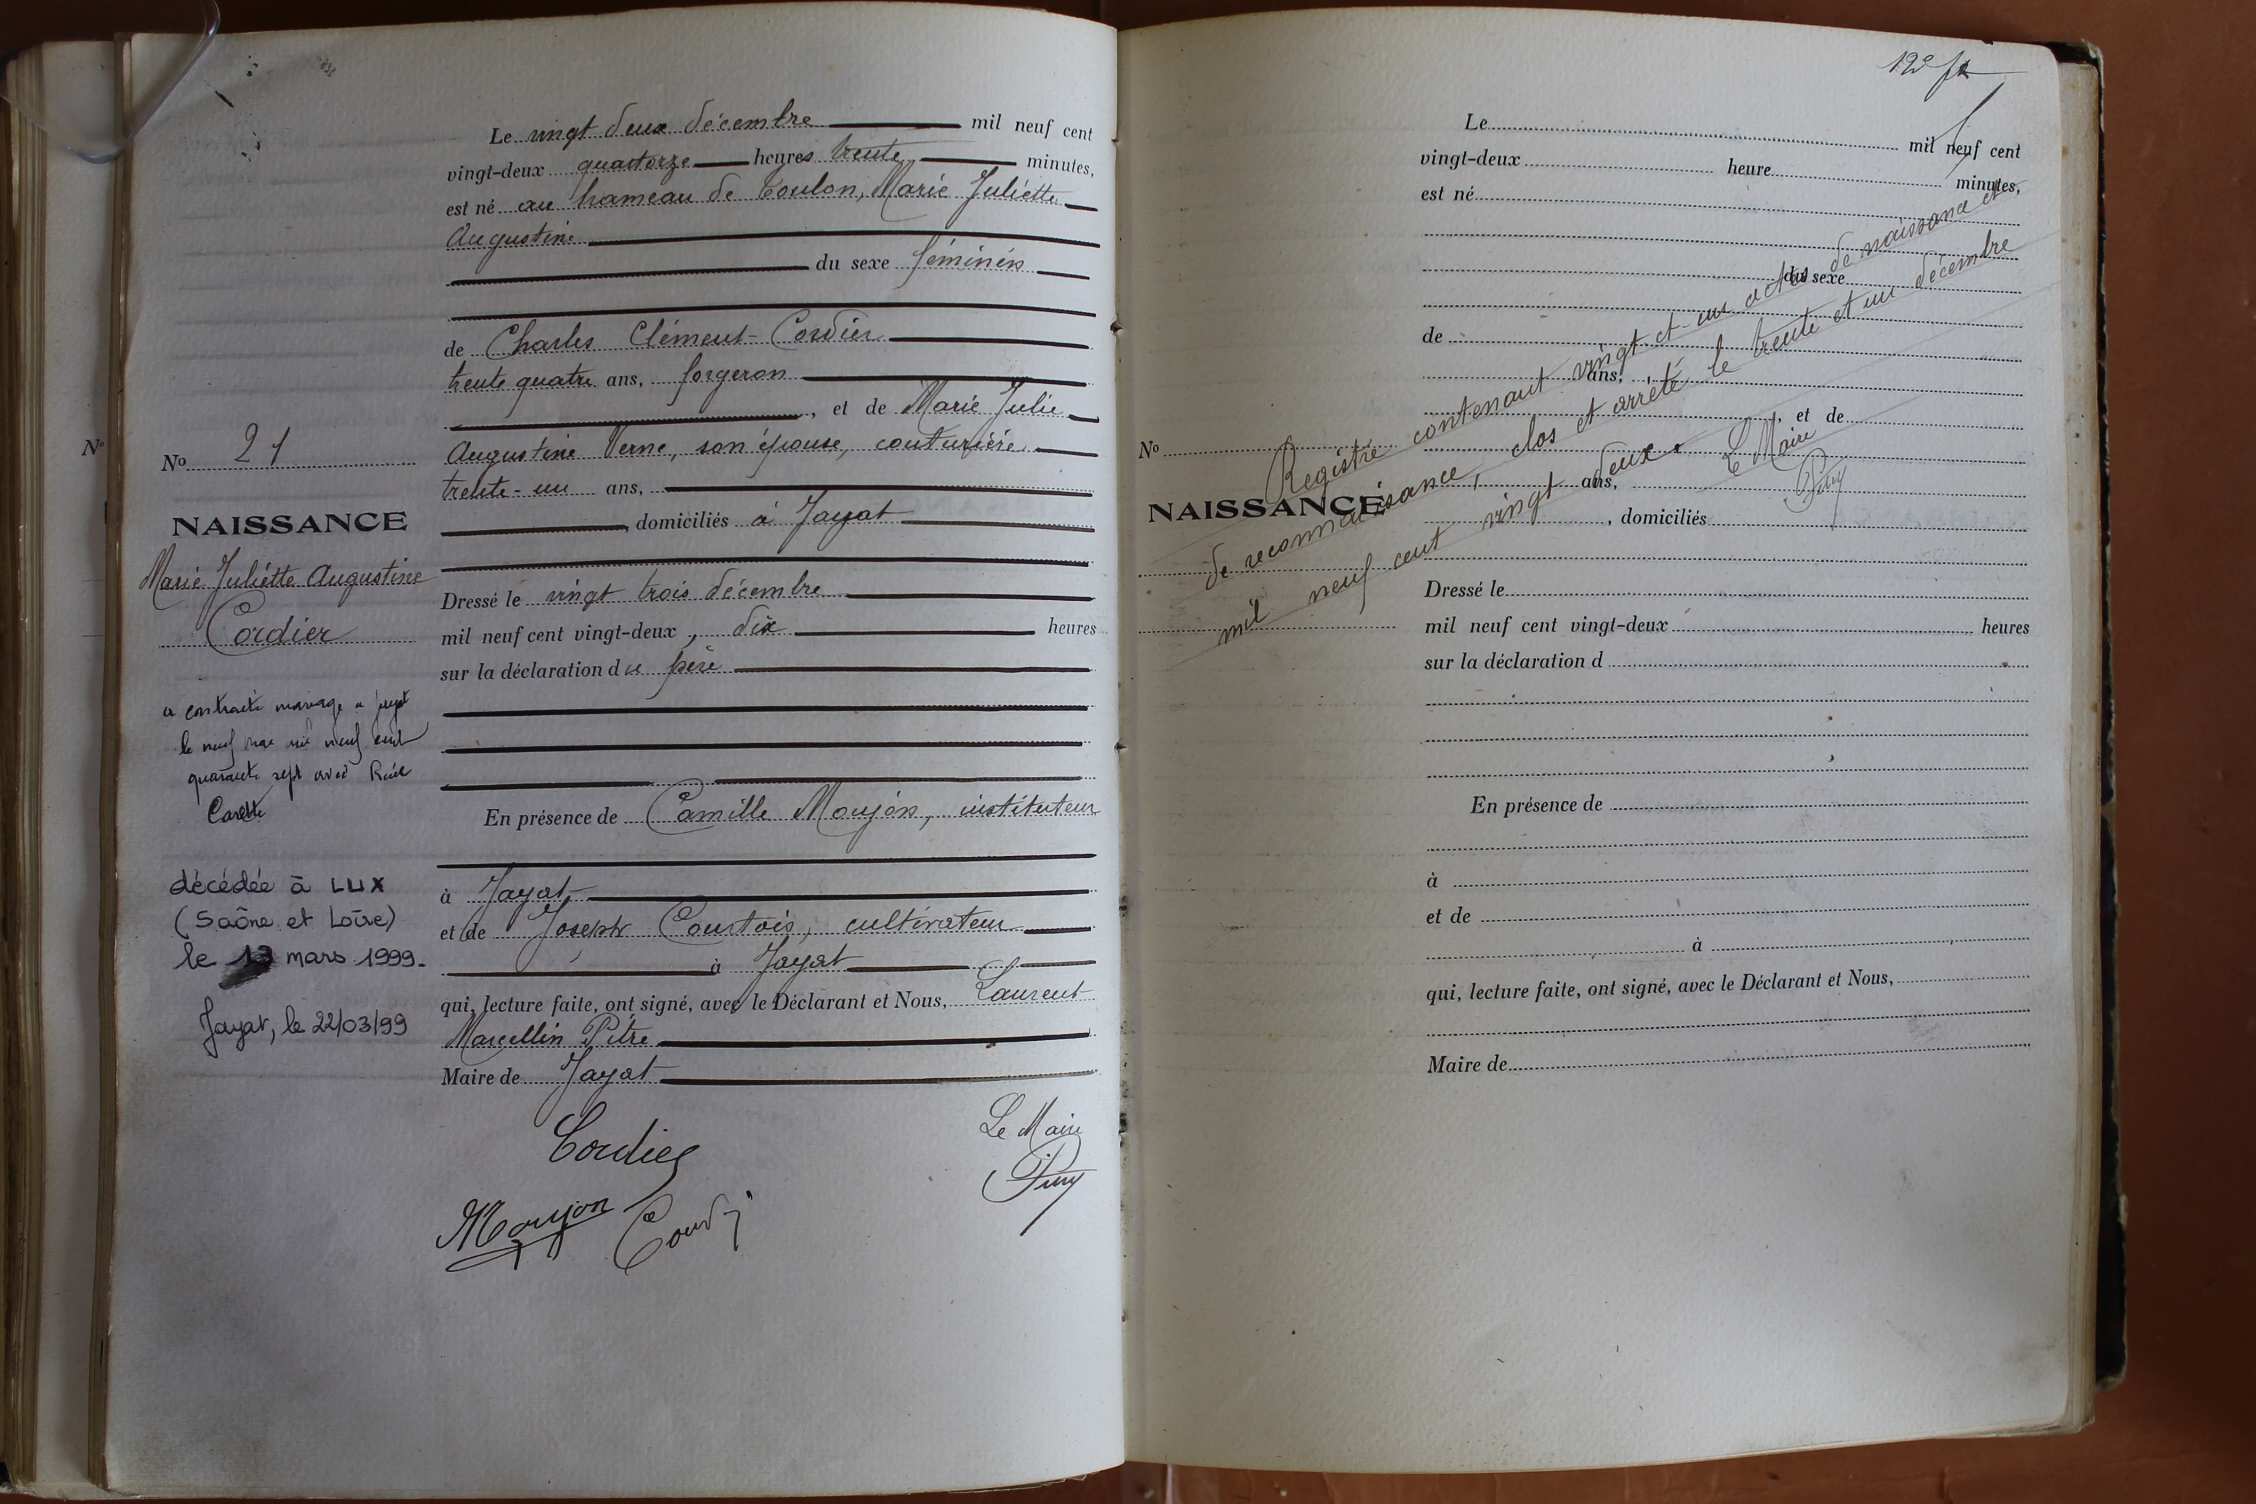 Le vingt deux décembre mil neuf cent
vingt-deux quatorze heures trente minutes,
est né au hameau de Coulon, Marie Juliette
Augustine
du sexe féminin
de Charles Clément Cordier
trente quatre ans, forgeron
, et de Marie Julie
Augustine Verne, son épouse, couturière
trente-un ans,
, domiciliés à Jayat
Dressé le vingt trois décembre
mil neuf cent vingt-deux, dix heures
sur la déclaration du père
En présence de Camille Moujon, instituteur
à Jayat
et de Joseph Courtois, cultivateur
à Jayat
qui, lecture faite, ont signé, avec le Déclarant et Nous, Laurent
Marcellin Pitre
Maire de Jayat
Cordier
Le Maire
Moujon
No 21
NAISSANCE
Marie Juliette Augustine
Cordier
a contracté mariage à Jayat
le neuf mil neuf cent
quarante sept avec
décédée à LUX
(Saône et Loire)
le 13 mars 1999.
Jayat, le 22/03/99
No
Le mil neuf cent
vingt-deux heure minutes,
est né
du sexe
de
ans,
, et de
No
NAISSANCE
ans,
, domiciliés
Dressé le
mil neuf cent vingt-deux heures
sur la déclaration d
En présence de
à
et de
à
qui, lecture faite, ont signé, avec le Déclarant et Nous,
Maire de
Registre contenant vingt et un actes de naissance et
de reconnaissance, clos et arrêté le trente et un décembre
mil neuf cent vingt deux.
Le Maire